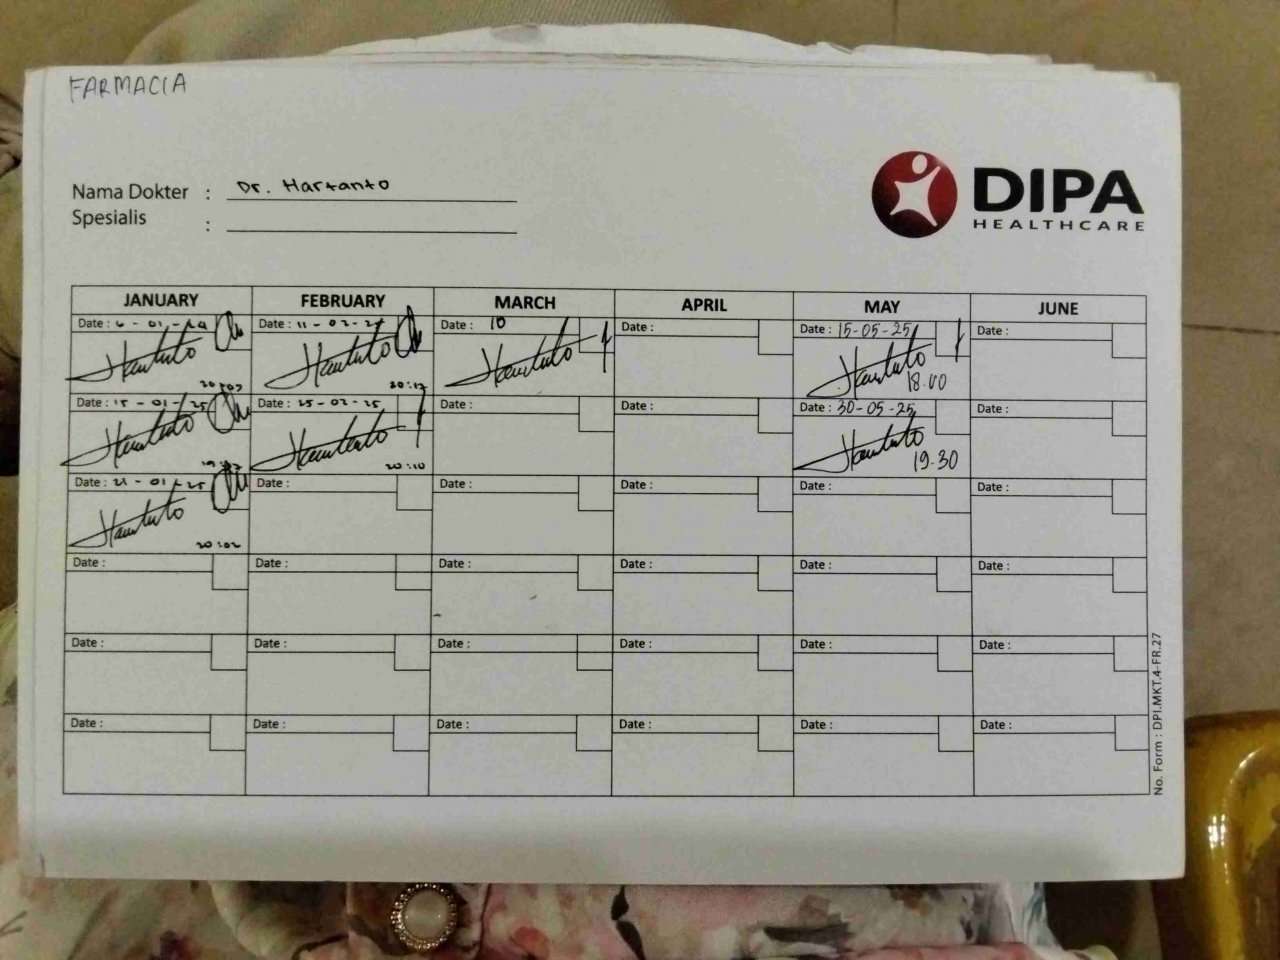 FARMACIA
Nama Dokter : Dr. Hartanto
Spesialis :
DIPA
HEALTHCARE
JANUARY FEBRUARY MARCH APRIL MAY JUNE
Date : 6 - 01 - Date : 11 - 02 - 25 Date : 10 Date : Date : 15-05-25 Date :
20:03 20:12 18.00
Date : 15 - 01 - 25 Date : 25 - 02 - 25 Date : Date : Date : 30-05-25 Date :
20:10 19.30
Date : 21 - 01 - 25 Date : Date : Date : Date : Date :
20:02
Date : Date : Date : Date : Date : Date :
Date : Date : Date : Date : Date : Date :
Date : Date : Date : Date : Date : Date :
No. Form : DPI.MKT.4-FR.27